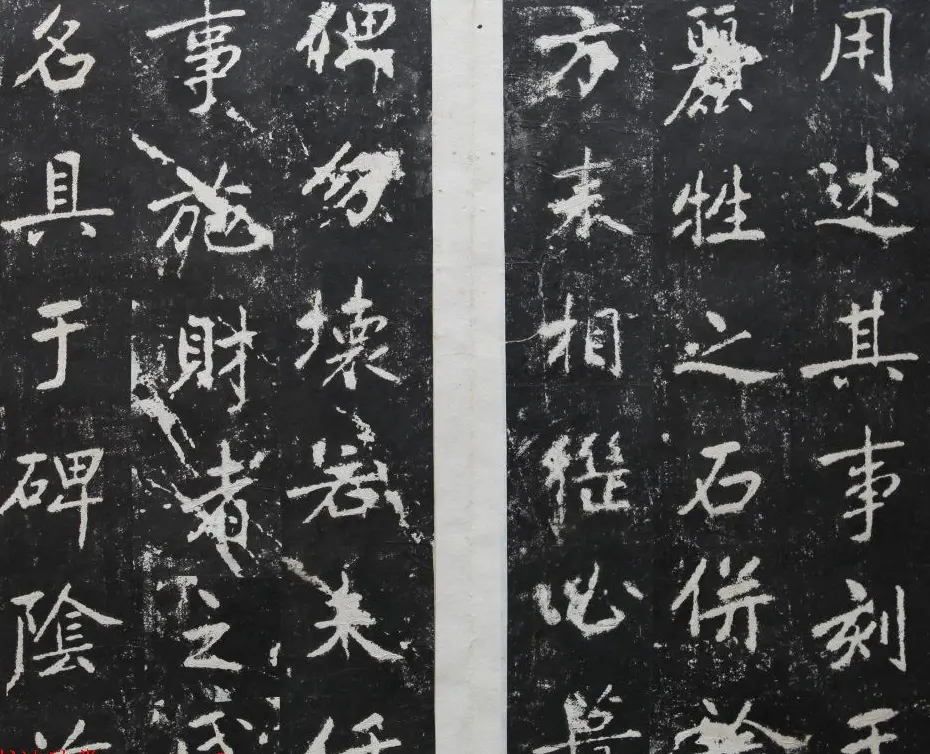 用述其事刻于
麗牲之石併
方來相繼必
俾勿壞若未任
事施財者之氏
名具于碑陰